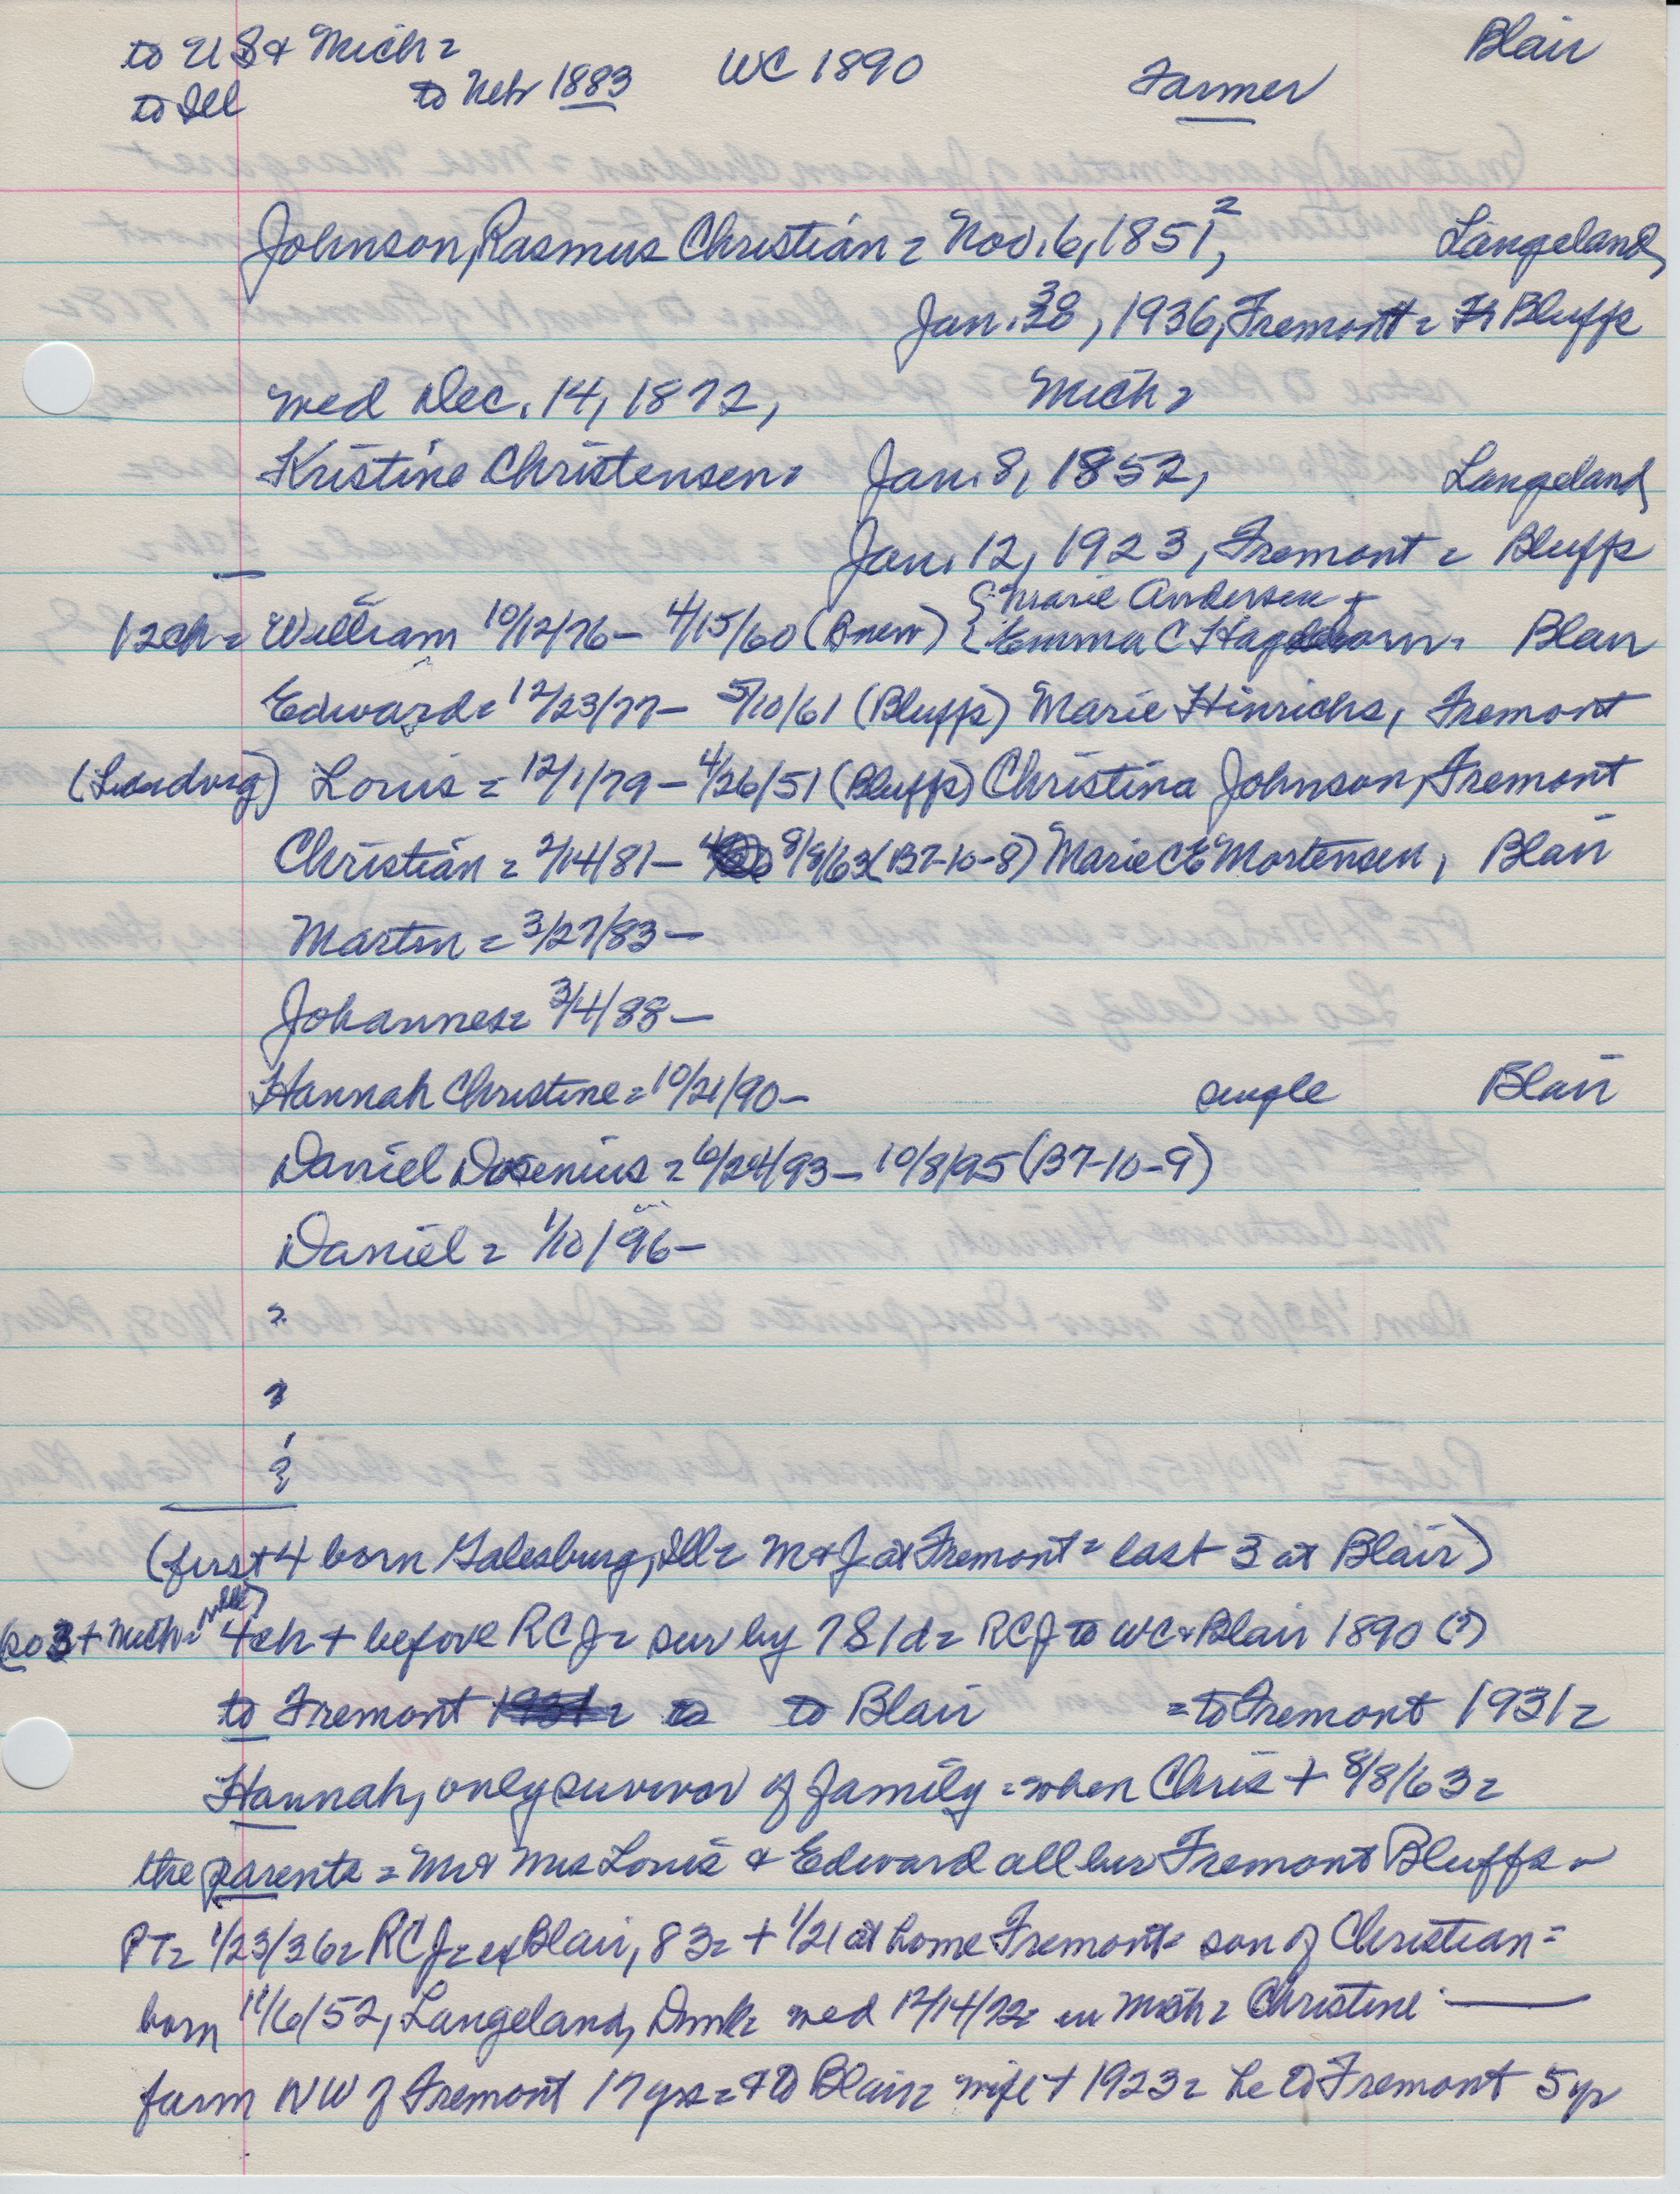 to US & Mich = Blair
to Ill to Nebr 1883 WC 1890 Farmer
Johnson, Rasmus Christian = Nov. 6, 1851, 2 Langeland,
Jan. 30, 1936, Fremont = Bluffs
wed Dec. 14, 1872, Mich =
Kristine Christensen = Jan. 8, 1852, Langeland,
Jan. 12, 1923, Fremont = Bluffs
{ Marie Andersen +
12ch = William 10/12/76 - 4/15/60 (Bnew) { Emma C Blair
Edward = 12/23/77 - 5/10/61 (Bluffs) Marie Hinrichs, Fremont
(Ludvig) Louis = 12/1/79 - 4/26/51 (Bluffs) Christina Johnson, Fremont
Christian = 2/14/81 - 8/8/63 (B7-10-8) Marie CE Mortensen, Blair
Martin = 3/27/83 -
Johannes = 3/4/88 -
Hannah Christine = 10/21/90 - single Blair
Daniel = 6/24/93 - 10/8/95 (B7-10-9)
Daniel = 1/10/96 -
?
?
?
(first 4 born Galesburg, Ill = M & J at Fremont = last 3 at Blair)
4ch + before RCJ = sur by 7s 1d = RCJ to WC & Blair 1890 (?)
to Fremont to Blair = to Fremont 1931 =
Hannah, only survivor of family = when Chris + 8/8/63 =
the parents = Mr & Mrs Louis & Edward all bur Fremont Bluffs =
PT = 1/23/36 = RCJ = ex Blair, 83 = + 1/21 at home Fremont = son of Christian =
born 11/6/52, Langeland, Dmk = wed 12/14/72 = in Mich = Christine —
farm NW of Fremont 17 yrs = & to Blair = wife + 1923 = he to Fremont 5 yr